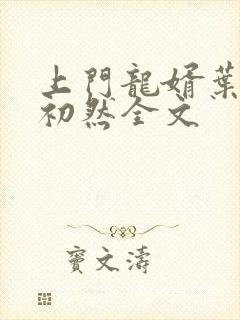 上門龍婿葉
初然全文
竇文濤